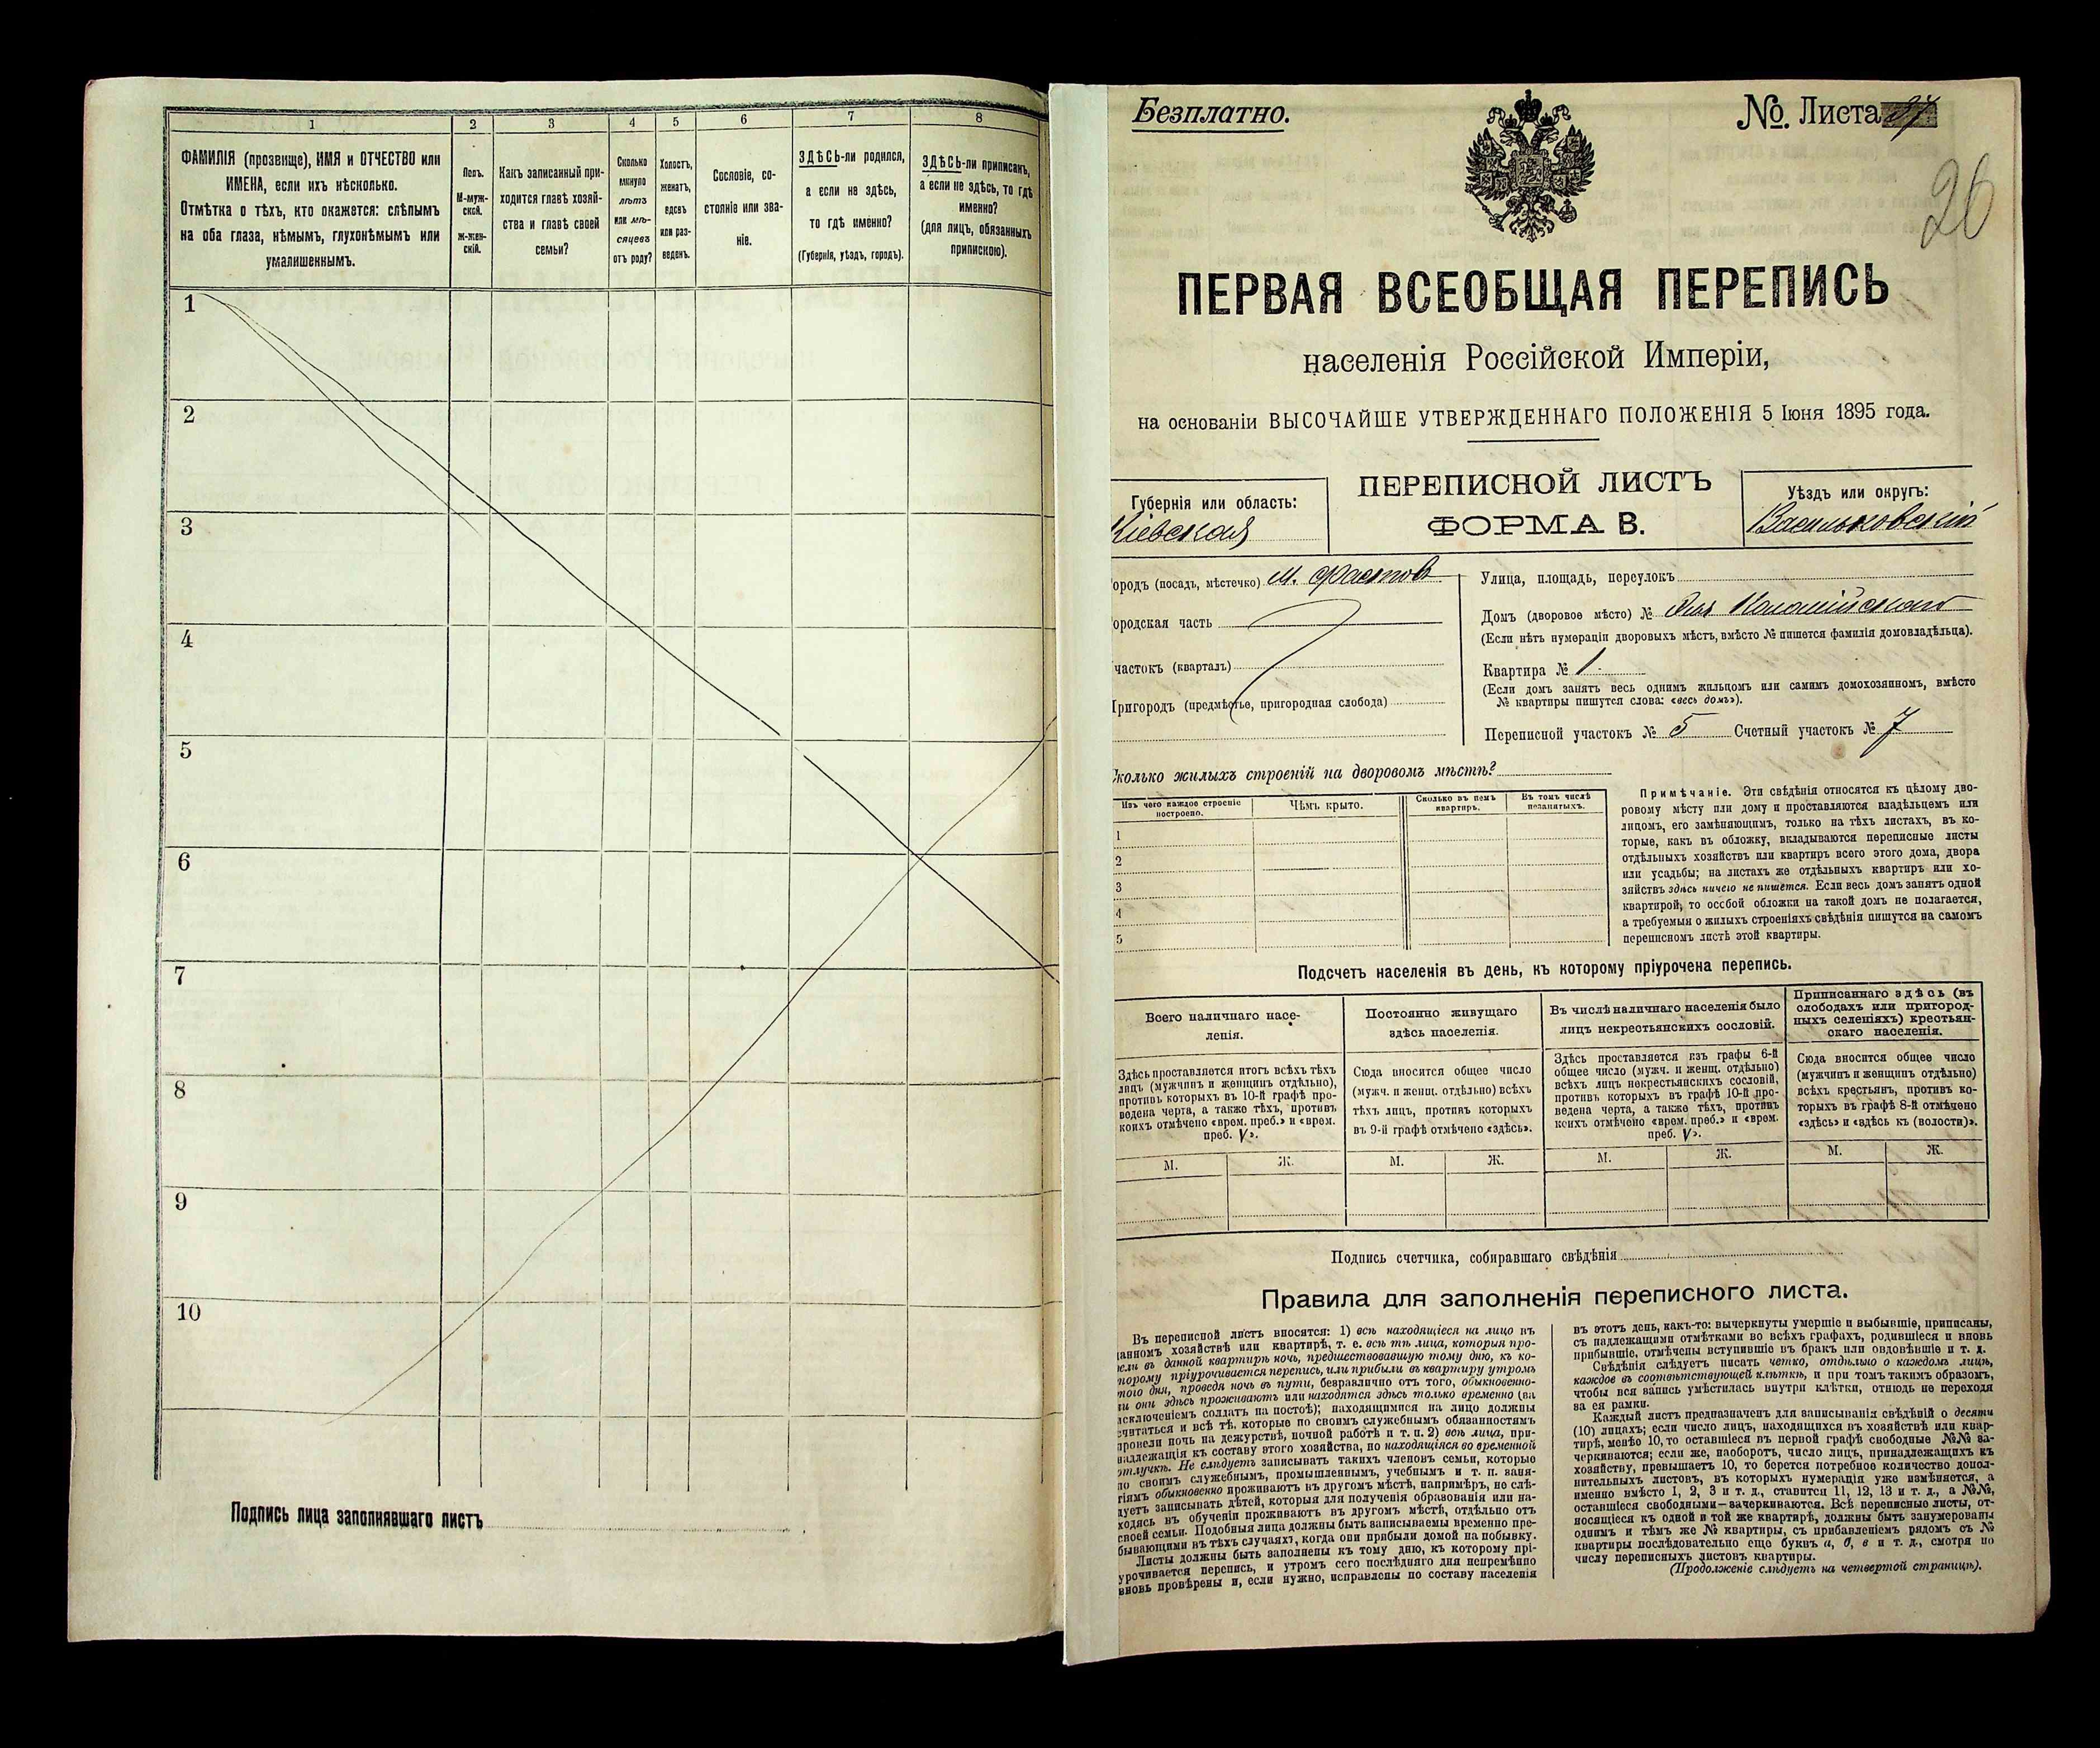 1
2
3
4
5
6
7
8
ФАМИЛІЯ (прозвище), ИМЯ и ОТЧЕСТВО или
ИМЕНА, если ихъ нѣсколько.
Отмѣтка о тѣхъ, кто окажется: слѣпымъ
на оба глаза, нѣмымъ, глухонѣмымъ или
умалишеннымъ.
Полъ.
М-муж-
ской.
ж-жен-
скій.
Какъ записанный при-
ходится главѣ хозяй-
ства и главѣ своей
семьи?
Сколько
минуло
лѣтъ
или мѣ-
сяцевъ
отъ роду?
Холостъ,
женатъ,
вдовъ
или раз-
веденъ.
Сословіе, со-
стояніе или зва-
ніе.
ЗДѢСЬ-ли родился,
а если не здѣсь,
то гдѣ именно?
(Губернія, уѣздъ, городъ).
ЗДѢСЬ-ли приписанъ,
а если не здѣсь, то гдѣ
именно?
(для лицъ, обязанныхъ
припискою).
1
2
3
4
5
6
7
8
9
10
Подпись лица заполнявшаго листъ
Безплатно.
№ Листа 27
26
ПЕРВАЯ ВСЕОБЩАЯ ПЕРЕПИСЬ
населенія Россійской Имперіи,
на основаніи ВЫСОЧАЙШЕ УТВЕРЖДЕННАГО ПОЛОЖЕНІЯ 5 Іюня 1895 года.
Губернія или область:
Кіевская
ПЕРЕПИСНОЙ ЛИСТЪ
ФОРМА В.
Уѣздъ или округъ:
Васильковскій
ородъ (посадъ, мѣстечко) м. Фастовъ
ородская часть
частокъ (кварталъ)
Пригородъ (предмѣстье, пригородная слобода)
Улица, площадь, переулокъ
Домъ (дворовое мѣсто) №
(Если нѣтъ нумераціи дворовыхъ мѣстъ, вмѣсто № пишется фамилія домовладѣльца).
Квартира № 1.
(Если домъ занятъ весь однимъ жильцомъ или самимъ домохозяиномъ, вмѣсто
№ квартиры пишутся слова: «весь домъ»).
Переписной участокъ № 5 Счетный участокъ № 7
Сколько жилыхъ строеній на дворовомъ мѣстѣ?
Изъ чего каждое строеніе
построено.
Чѣмъ крыто.
Сколько въ немъ
квартиръ.
Въ томъ числѣ
незанятыхъ.
1
2
3
4
5
Примѣчаніе. Эти свѣдѣнія относятся къ цѣлому дво-
ровому мѣсту или дому и проставляются владѣльцемъ или
лицомъ, его замѣняющимъ, только на тѣхъ листахъ, въ ко-
торые, какъ въ обложку, вкладываются переписные листы
отдѣльныхъ хозяйствъ или квартиръ всего этого дома, двора
или усадьбы; на листахъ же отдѣльныхъ квартиръ или хо-
зяйствъ здѣсь ничего не пишется. Если весь домъ занятъ одной
квартирой, то особой обложки на такой домъ не полагается,
а требуемыя о жилыхъ строеніяхъ свѣдѣнія пишутся на самомъ
переписномъ листѣ этой квартиры.
Подсчетъ населенія въ день, къ которому пріурочена перепись.
Всего наличнаго насе-
ленія.
Постоянно живущаго
здѣсь населенія.
Въ числѣ наличнаго населенія было
лицъ некрестьянскихъ сословій.
Приписаннаго здѣсь (въ
слободахъ или пригород-
ныхъ селеніяхъ) крестьян-
скаго населенія.
Здѣсь проставляется итогъ всѣхъ тѣхъ
лицъ (мужчинъ и женщинъ отдѣльно),
противъ которыхъ въ 10-й графѣ про-
ведена черта, а также тѣхъ, противъ
коихъ отмѣчено «врем. преб.» и «врем.
преб. V».
Сюда вносится общее число
(мужч. и женщ. отдѣльно) всѣхъ
тѣхъ лицъ, противъ которыхъ
въ 9-й графѣ отмѣчено «здѣсь».
Здѣсь проставляется изъ графы 6-й
общее число (мужч. и женщ. отдѣльно)
всѣхъ лицъ некрестьянскихъ сословій,
противъ которыхъ въ графѣ 10-й про-
ведена черта, а также тѣхъ, противъ
коихъ отмѣчено «врем. преб.» и «врем.
преб. V».
Сюда вносится общее число
(мужчинъ и женщинъ отдѣльно)
всѣхъ крестьянъ, противъ ко-
торыхъ въ графѣ 8-й отмѣчено
«здѣсь» и «здѣсь къ (волости)».
М. Ж. М. Ж. М. Ж. М. Ж.
Подпись счетчика, собиравшаго свѣдѣнія
Правила для заполненія переписного листа.
Въ переписной листъ вносятся: 1) всѣ находящіеся на лицо въ
данномъ хозяйствѣ или квартирѣ, т. е. всѣ тѣ лица, которыя про-
вели въ данной квартирѣ ночь, предшествовавшую тому дню, къ ко-
торому пріурочивается перепись, или прибыли въ квартиру утромъ
того дня, проведя ночь въ пути, безразлично отъ того, обыкновенно-
ли они здѣсь проживаютъ или находятся здѣсь только временно (за
исключеніемъ солдатъ на постоѣ); находящимися на лицо должны
считаться и всѣ тѣ, которые по своимъ служебнымъ обязанностямъ
провели ночь на дежурствѣ, ночной работѣ и т. п. 2) всѣ лица, при-
надлежащія къ составу этого хозяйства, но находящіяся во временной
отлучкѣ. Не слѣдуетъ записывать такихъ членовъ семьи, которые
по своимъ служебнымъ, промышленнымъ, учебнымъ и т. п. заня-
тіямъ обыкновенно проживаютъ въ другомъ мѣстѣ, напримѣръ, не слѣ-
дуетъ записывать дѣтей, которыя для полученія образованія или на-
ходясь въ обученіи проживаютъ въ другомъ мѣстѣ, отдѣльно отъ
своей семьи. Подобныя лица должны быть записываемы временно пре-
бывающими въ тѣхъ случаяхъ, когда они прибыли домой на побывку.
Листы должны быть заполнены къ тому дню, къ которому прі-
урочивается перепись, и утромъ сего послѣдняго дня непремѣнно
вновь провѣрены и, если нужно, исправлены по составу населенія
въ этотъ день, какъ-то: вычеркнуты умершіе и выбывшіе, приписаны,
съ надлежащими отмѣтками во всѣхъ графахъ, родившіеся и вновь
прибывшіе, отмѣчены вступившіе въ бракъ или овдовѣвшіе и т. д.
Свѣдѣнія слѣдуетъ писать четко, отдѣльно о каждомъ лицѣ,
каждое въ соотвѣтствующей клѣткѣ, и при томъ такимъ образомъ,
чтобы вся запись умѣстилась внутри клѣтки, отнюдь не переходя
за ея рамки.
Каждый листъ предназначенъ для записыванія свѣдѣній о десяти
(10) лицахъ; если число лицъ, находящихся въ хозяйствѣ или квар-
тирѣ, менѣе 10, то оставшіеся въ первой графѣ свободные №№ за-
черкиваются; если же, наоборотъ, число лицъ, принадлежащихъ къ
хозяйству, превышаетъ 10, то берется потребное количество допол-
нительныхъ листовъ, въ которыхъ нумерація уже измѣняется, а
именно вмѣсто 1, 2, 3 и т. д., ставится 11, 12, 13 и т. д., а №№,
оставшіеся свободными—зачеркиваются. Всѣ переписные листы, от-
носящіеся къ одной и той же квартирѣ, должны быть занумерованы
однимъ и тѣмъ же № квартиры, съ прибавленіемъ рядомъ съ №
квартиры послѣдовательно еще буквъ а, б, в и т. д., смотря по
числу переписныхъ листовъ квартиры.
(Продолженіе слѣдуетъ на четвертой страницѣ).